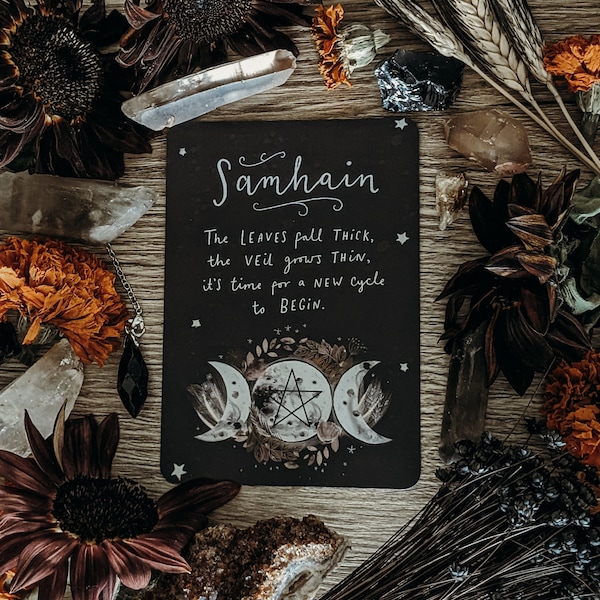 Samhain
The LEAVES fall THICK,
the VEIL grows THIN,
it's time for a NEW cycle
to BEGIN.